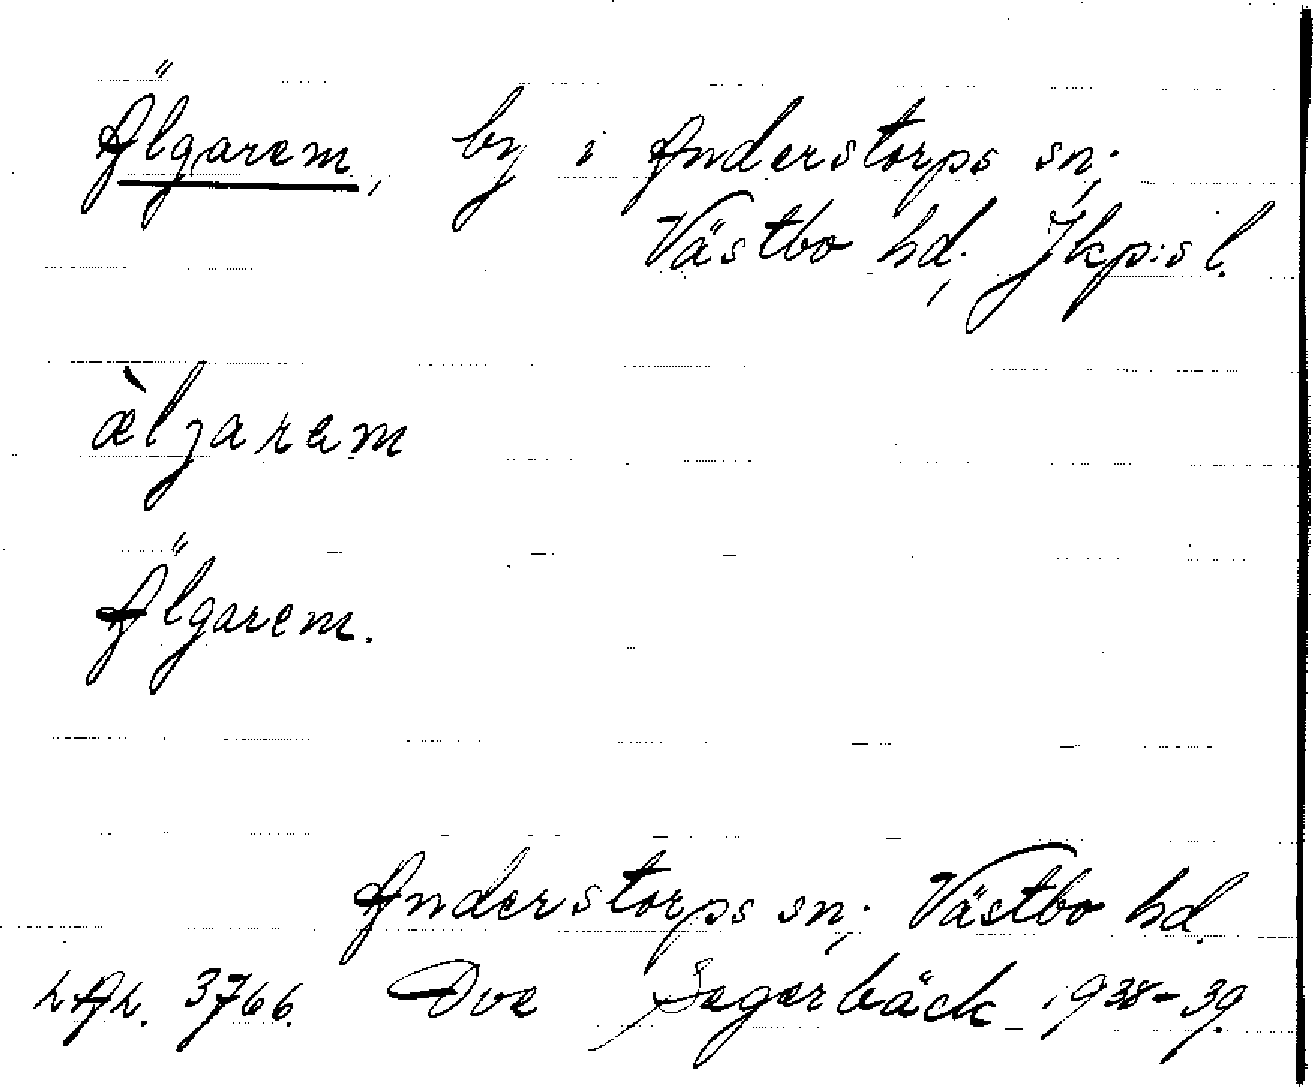 Älgarem, by i Anderstorps sn.,
Västbo hd., Jkp:s l.
æ̀ljaram
Älgarem.
Anderstorps sn., Västbo hd.
3766. Ove Segerbäck 1938-39.